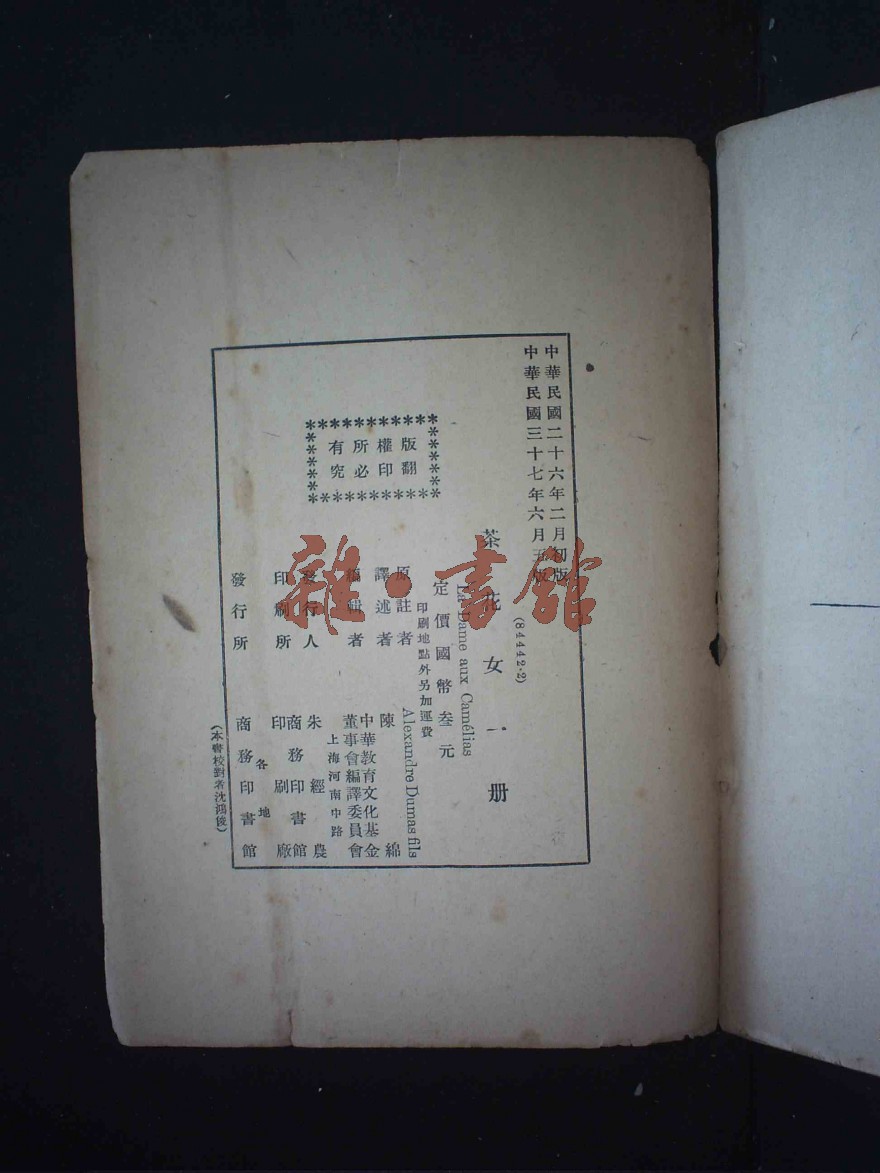 中華民國二十六年二月初版
中華民國三十七年六月五版
(84442·2)
茶花女一册
La Dame aux Camélias
定價國幣叁元
印刷地點外另加運費
版權所有
翻印必究
原註者 Alexandre Dumas fils
譯述者 陳綿
編輯者 中華教育文化基金
董事會編譯委員會
上海河南中路
發行人 朱經農
印刷所 商務印書館
印刷廠
各地
發行所 商務印書館
(本書校對者沈鴻俊)
雜·書館